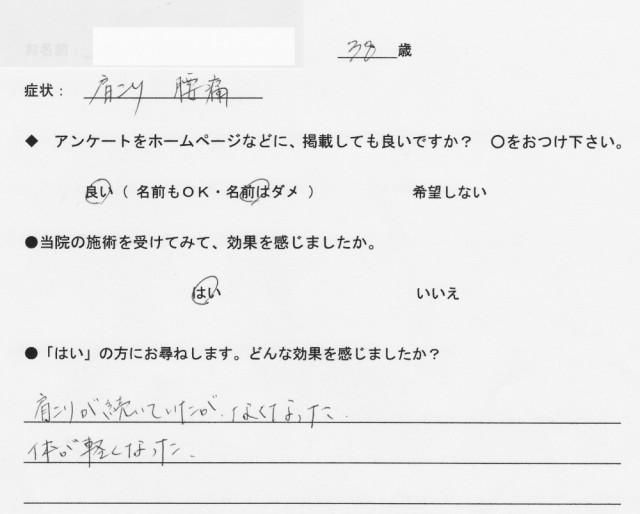 お名前： 38 歳
症状： 肩こり 腰痛
◆ アンケートをホームページなどに、掲載しても良いですか？ 〇をおつけ下さい。
良い（ 名前もＯＫ・名前はダメ ） 希望しない
●当院の施術を受けてみて、効果を感じましたか。
はい いいえ
●「はい」の方にお尋ねします。どんな効果を感じましたか？
肩こりが続いていたが、なくなった。
体が軽くなった。